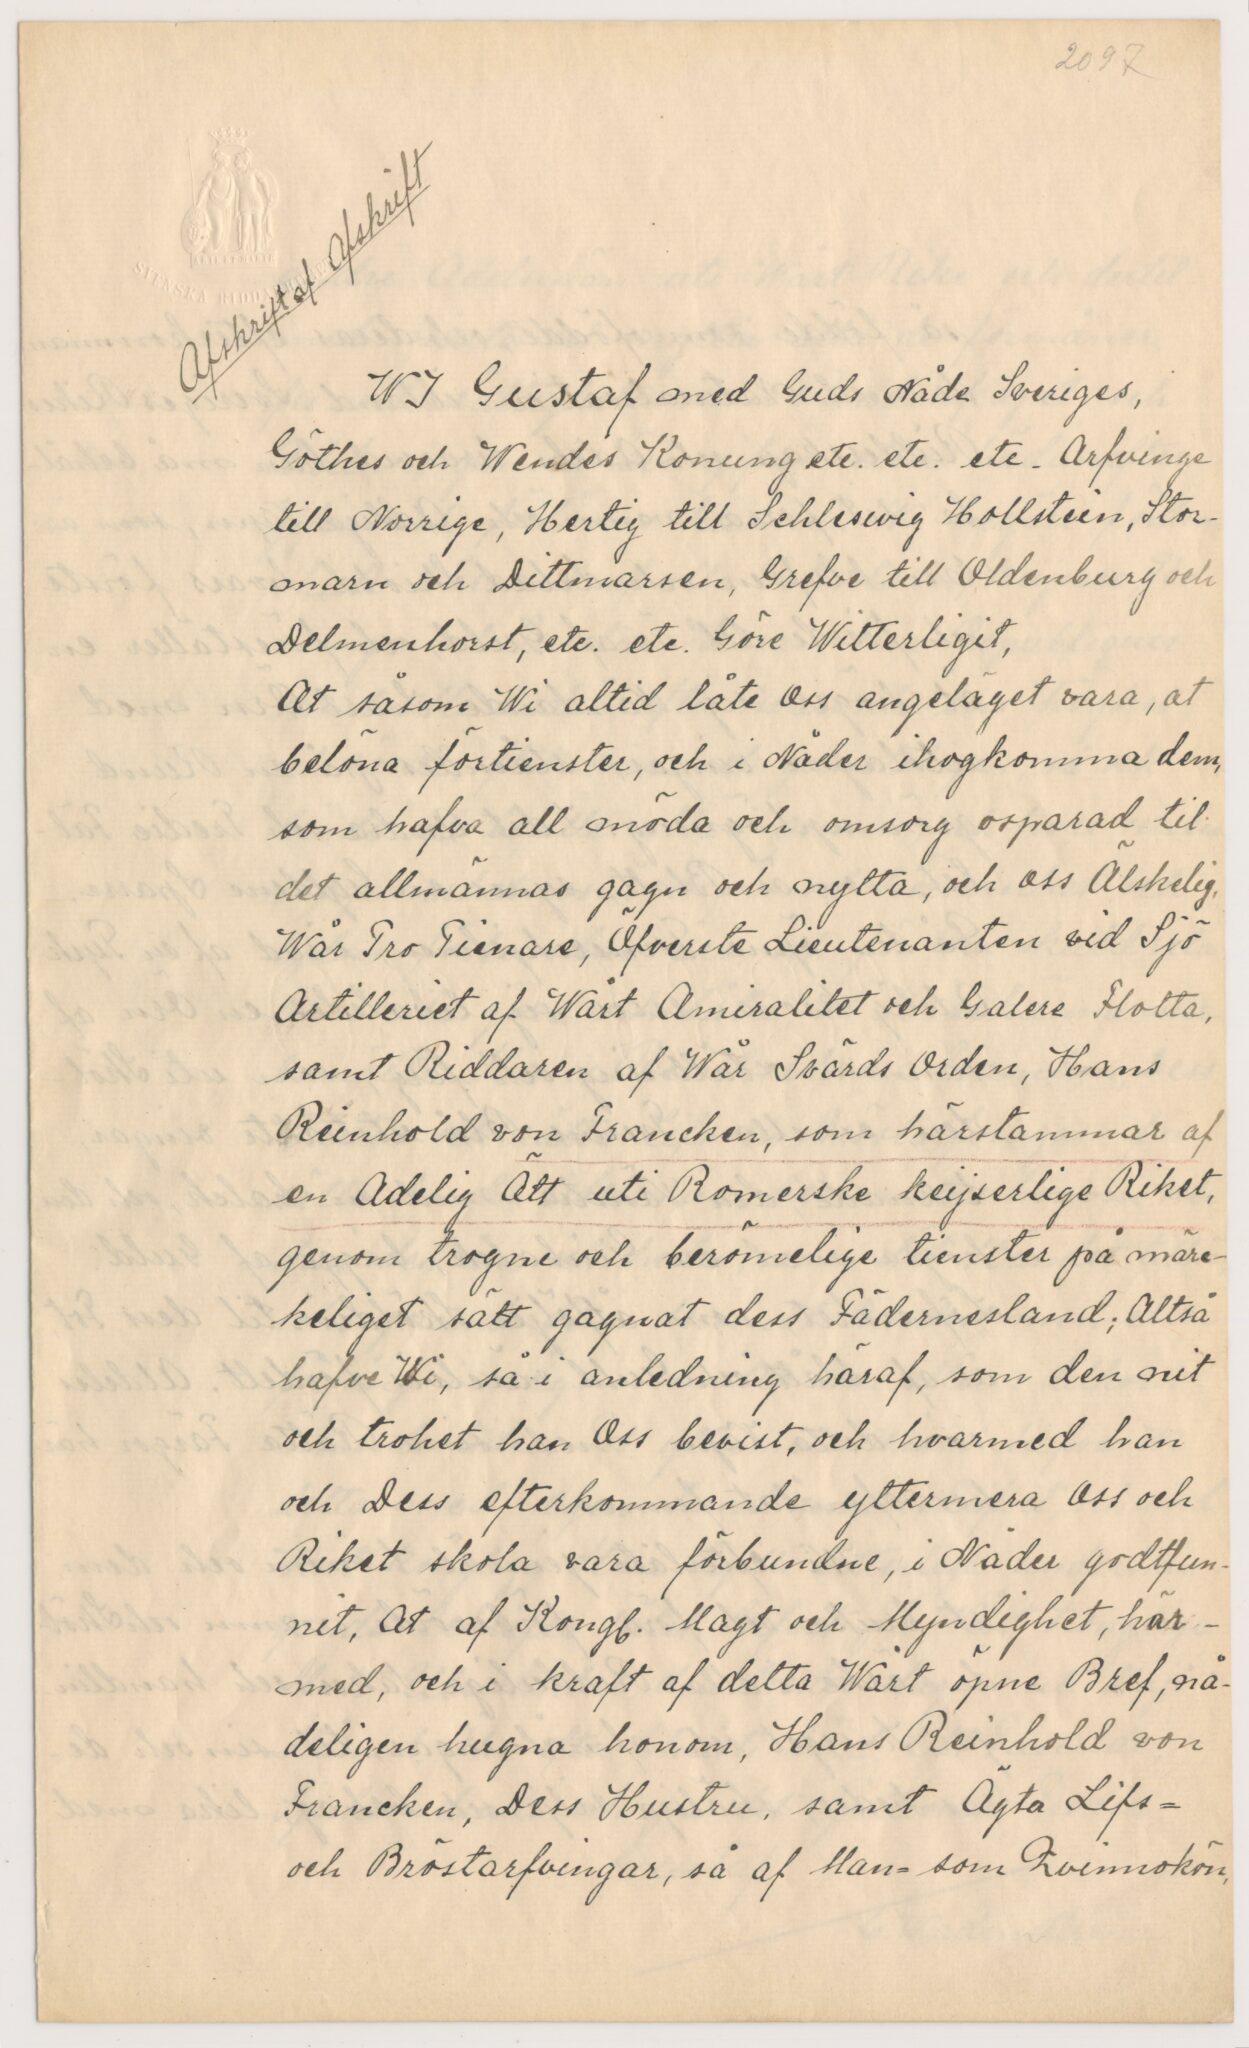 2097
Afskrift af Afskrift
SVENSKA RIDDA
WJ Gustaf med Guds Nåde Sveriges,
Göthes och Wendes Konung etc. etc. etc. Arfvinge
till Norrige, Hertig till Schleswig Hollstein, Stor-
marn och Dittmarsen, Grefve till Oldenburg och
Delmenhorst, etc. etc. Göre Witterligit,
At såsom Wi altid låte Oss angeläget vara, at
belöna förtienster, och i Nåder ihogkomma dem,
som hafva all möda och omsorg osparad til
det allmännas gagn och nytta, och oss Älskelig,
Wår Tro Tienare, Öfverste Lieutenanten vid Sjö
Artilleriet af Wårt Amiralitet och Galere Flotta,
samt Riddaren af Wår Svärds Orden, Hans
Reinhold von Francken, som härstammar af
en Adelig Ätt uti Romerske keijserlige Riket,
genom trogne och berömelige tienster på märc-
keliget sätt gagnat dess Fädernesland; Altså
hafve Wi, så i anledning häraf, som den nit
och trohet han Oss bevist, och hvarmed han
och Dess efterkommande yttermera Oss och
Riket skola vara förbundne, i Nåder godtfun-
nit, At af Kongl. Magt och Myndighet, här-
med, och i kraft af detta Wårt öpne Bref, nå-
deligen hugna honom, Hans Reinhold von
Francken, Dess Hustru, samt Ägta Lifs=
och Bröstarfvingar, så af Man= som Qvinnokön,